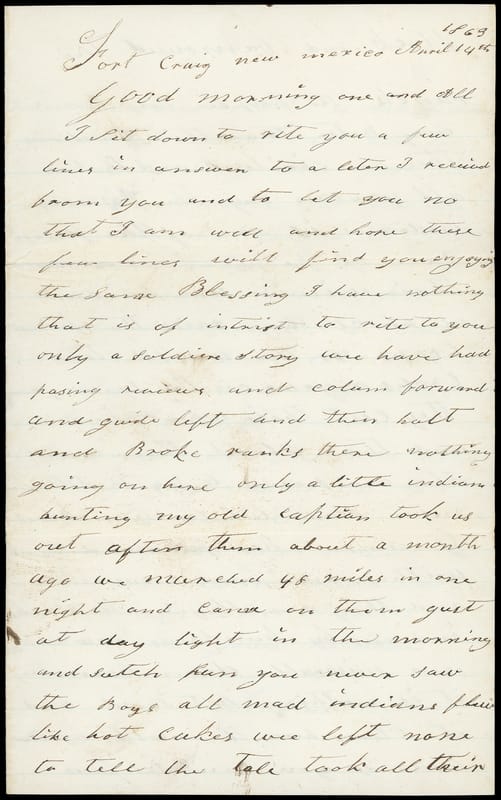 1863
Fort Craig new mexico April 14th
Good morning one and All
I sit down to rite you a few
lines in answer to a leter I recived
from you and to let you no
that I am well and hope these
few lines will find you enjoying
the same Blessing I have nothing
that is of intrist to rite to you
only a soldiers story wee have had
pasing reviews and colum forward
and guide left and then halt
and Broke ranks there nothing
going on here only a little indian
hunting my old captian took us
out after them about a month
ago we marched 48 miles in one
night and came on them gust
at day light in the morning
and sutch fun you never saw
the Boys all mad indians flew
like hot cakes wee left none
to tell the tale took all their